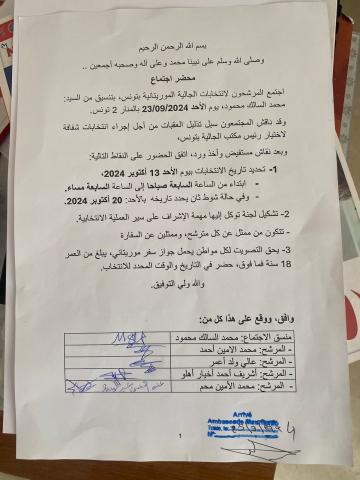 بسم الله الرحمن الرحيم
وصلى الله وسلم على نبينا محمد وعلى آله وصحبه أجمعين ..
محضر اجتماع
اجتمع المرشحون لانتخابات الجالية الموريتانية بتونس، بتنسيق من السيد:
محمد السالك محمود، يوم الأحد 23/09/2024 بالمنار 2 تونس.
وقد ناقش المجتمعون سبل تذليل العقبات من أجل إجراء انتخابات شفافة
لاختيار رئيس مكتب الجالية بتونس،
وبعد نقاش مستفيض وأخذ ورد، اتفق الحضور على النقاط التالية:
1- تحديد تاريخ الانتخابات بيوم الأحد 13 أكتوبر 2024،
- ابتداء من الساعة السابعة صباحا إلى الساعة السابعة مساء.
- وفي حالة شوط ثان يحدد تاريخه بالأحد: 20 أكتوبر 2024.
2- تشكيل لجنة توكل إليها مهمة الإشراف على سير العملية الانتخابية.
- تتكون من ممثل عن كل مترشح، وممثلين عن السفارة
3- يحق التصويت لكل مواطن يحمل جواز سفر موريتاني، يبلغ من العمر
18 سنة فما فوق، حضر في التاريخ والوقت المحدد للانتخاب.
والله ولي التوفيق.
وافق، ووقع على هذا كل من:
منسق الاجتماع: محمد السالك محمود
- المرشح: محمد الامين أحمد
- المرشح: غالي ولد أعمر
- المرشح: أشريف أحمد أخيار أهلو
- المرشح: محمد الأمين محم
Arrivé
1